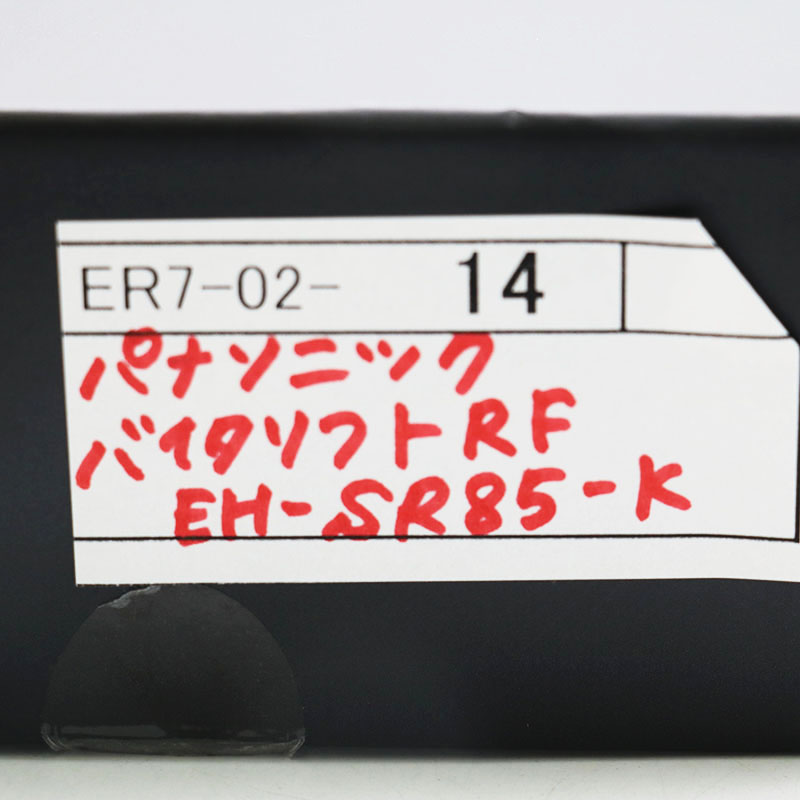 ER7-02- 14
パナソニック
バイタリフトRF
EH-SR85-K